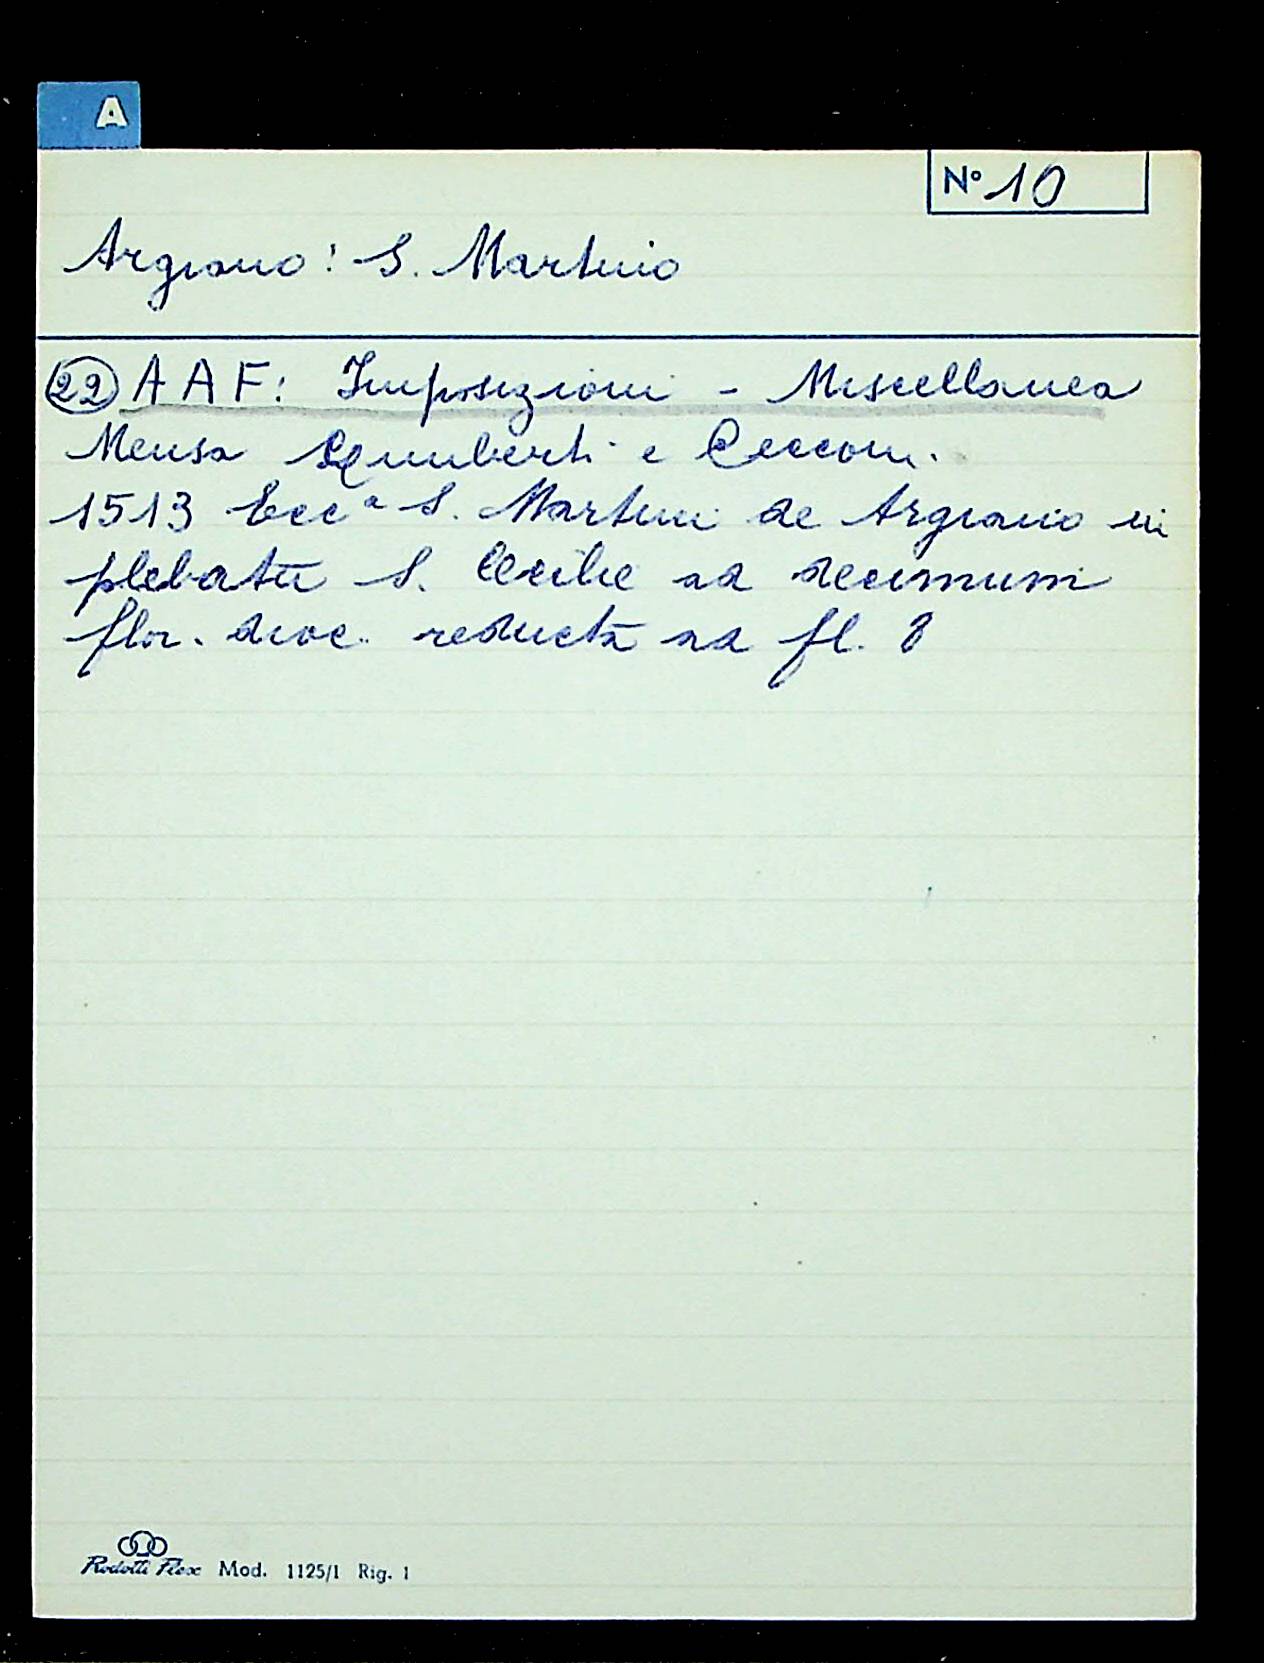 A
N° 10
Argiano: S. Martino
22 A A F: Imposizioni - Miscellanea
Mensa e Cecconi.
1513 Ecc.ª S. Martini de Argiano in
plebatū S. Cecilie ad decimum
flor. dioc. reducta ad fl. 8
Mod. 1125/1 Rig. 1